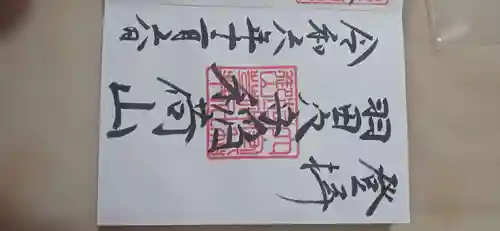 登拝
羽田穴守稲荷山
令和六年十二月六日